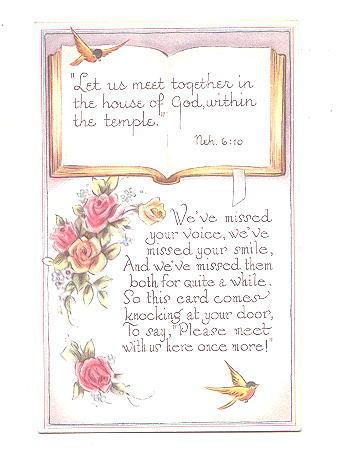 "Let us meet together in
the house of God, within
the temple."
Neh. 6:10
We've missed
your voice, we've
missed your smile,
And we've missed them
both for quite a while.
So this card comes
knocking at your door,
To say, "Please meet
with us here once more!"